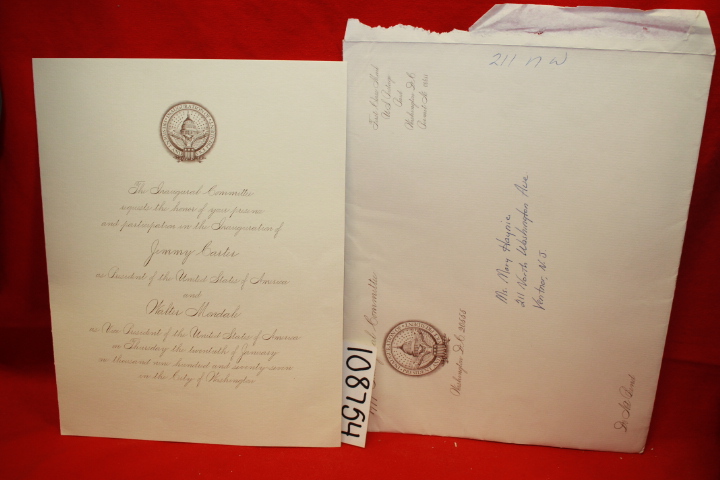 The Inaugural Committee
requests the honor of your presence
and participation in the Inauguration of
Jimmy Carter
as President of the United States of America
and
Walter Mondale
as Vice President of the United States of America
on Thursday the twentieth of January
one thousand nine hundred and seventy seven
in the City of Washington
108754
211 N W
First Class Mail
U.S. Postage
Paid
Washington D.C.
Mr. Mary Haynie
211 North Washington Ave
Ventnor, N.J.
Committee
Washington D.C. 20555
Do Not Bend